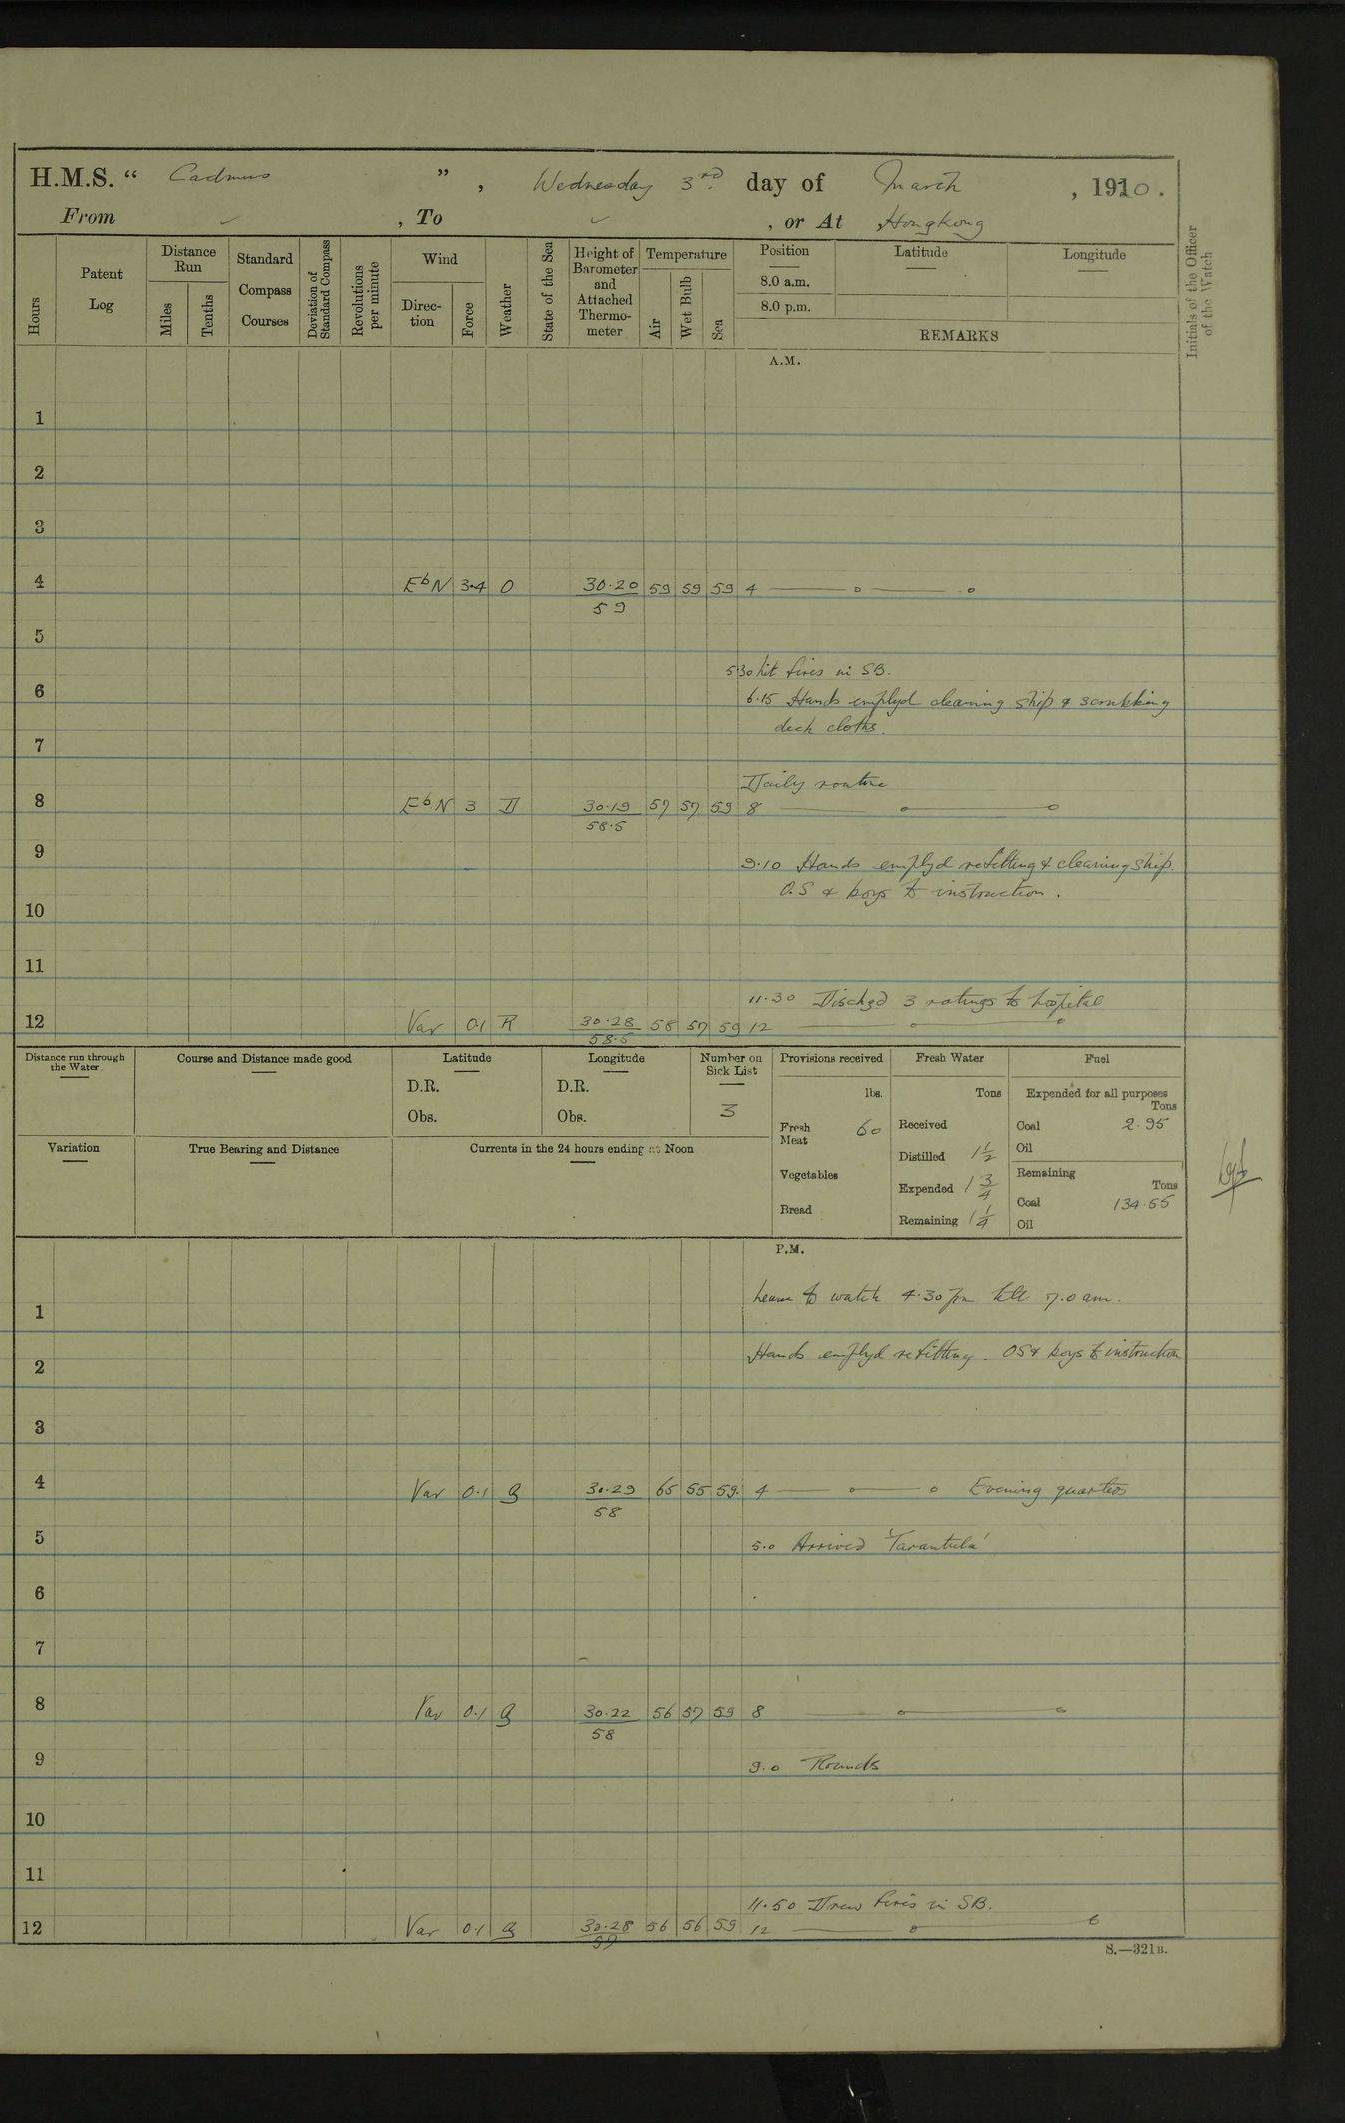 H.M.S. “ Cadmus ” , Wednesday 3rd day of March , 1920.
From ✓ , To ✓ , or At Hongkong
Hours
Patent Log
Distance Run
Miles
Tenths
Standard Compass Courses
Deviation of Standard Compass
Revolutions per minute
Wind
Direction
Force
Weather
State of the Sea
Height of Barometer and Attached Thermometer
Temperature
Air
Wet Bulb
Sea
Position
8.0 a.m.
8.0 p.m.
Latitude
Longitude
REMARKS
Initials of the Officer of the Watch
A.M.
1
2
3
4 EbN 3·4 O 30·20 59 59 59 4
59
5
5·30 lit fires in SB.
6
6·15 Hands emplyd cleaning ship & scrubbing
deck cloths.
7
Daily routine
8 EbN 3 D 30·19 57 57 59 8
58·5
9
9·10 Hands emplyd refitting & cleaning ship.
O.S & boys to instruction.
10
11
11·30 Dischgd 3 ratings to hospital
12 Var 0·1 R 30·28 58 57 59 12
58·5
Distance run through the Water
Course and Distance made good
Latitude
D.R.
Obs.
Longitude
D.R.
Obs.
Number on Sick List
3
Variation
True Bearing and Distance
Currents in the 24 hours ending at Noon
Provisions received
lbs.
Fresh Meat 60
Vegetables
Bread
Fresh Water
Tons
Received
Distilled 1 1/2
Expended 1 3/4
Remaining 1 1/4
Fuel
Expended for all purposes
Tons
Coal 2·95
Oil
Remaining
Tons
Coal 134·55
Oil
P.M.
Leave to watch 4·30 pm till 7.0 am.
1
Hands emplyd refitting. OS & boys to instruction
2
3
4 Var 0·1 g 30·29 65 55 59· 4 Evening quarters
58
5
5·0 Arrived 'Tarantula'
6
7
8 Var 0·1 g 30·22 56 57 59 8
58
9
9·0 Rounds
10
11
11·50 Drew fires in SB.
12 Var 0·1 g 30·28 56 56 59 12
59
S.—321B.